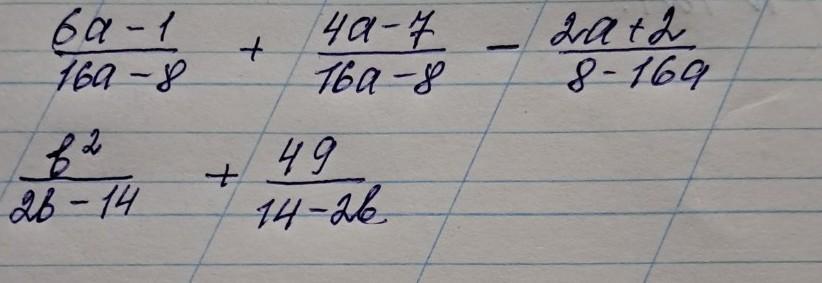 (6a - 1)/(16a - 8) + (4a - 7)/(16a - 8) - (2a + 2)/(8 - 16a)
b²/(2b - 14) + 49/(14 - 2b)